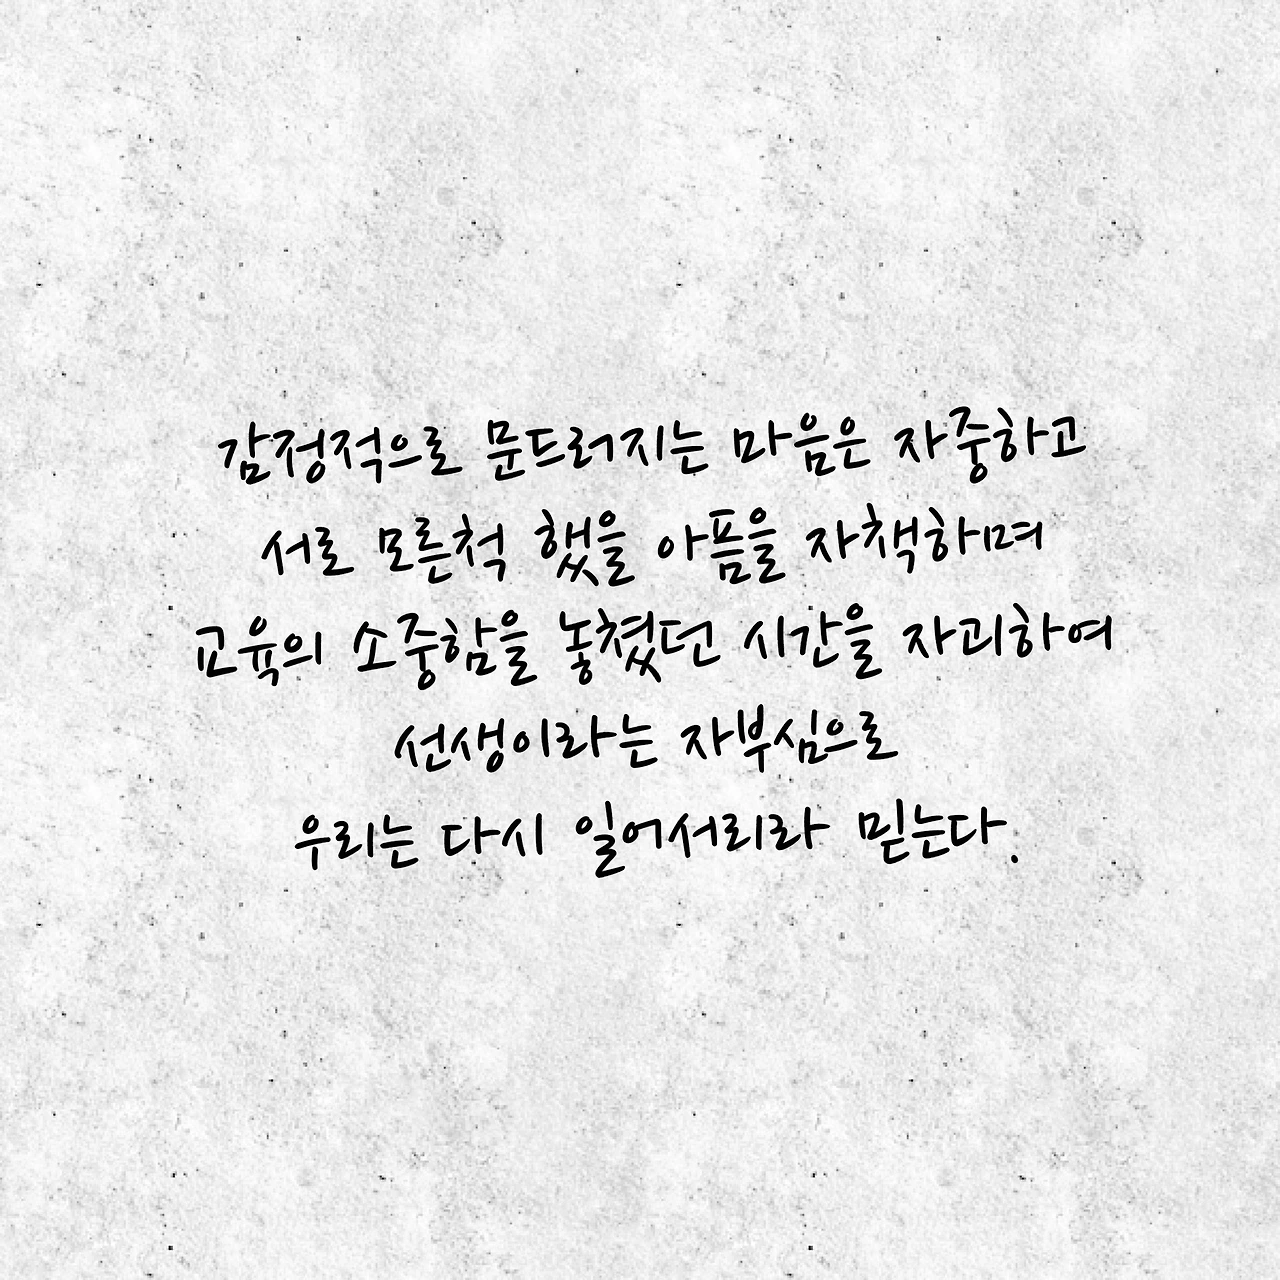 감정적으로 문드러지는 마음은 자중하고
서로 모른척 했을 아픔을 자책하며
교육의 소중함을 놓쳤던 시간을 자괴하여
선생이라는 자부심으로
우리는 다시 일어서리라 믿는다.